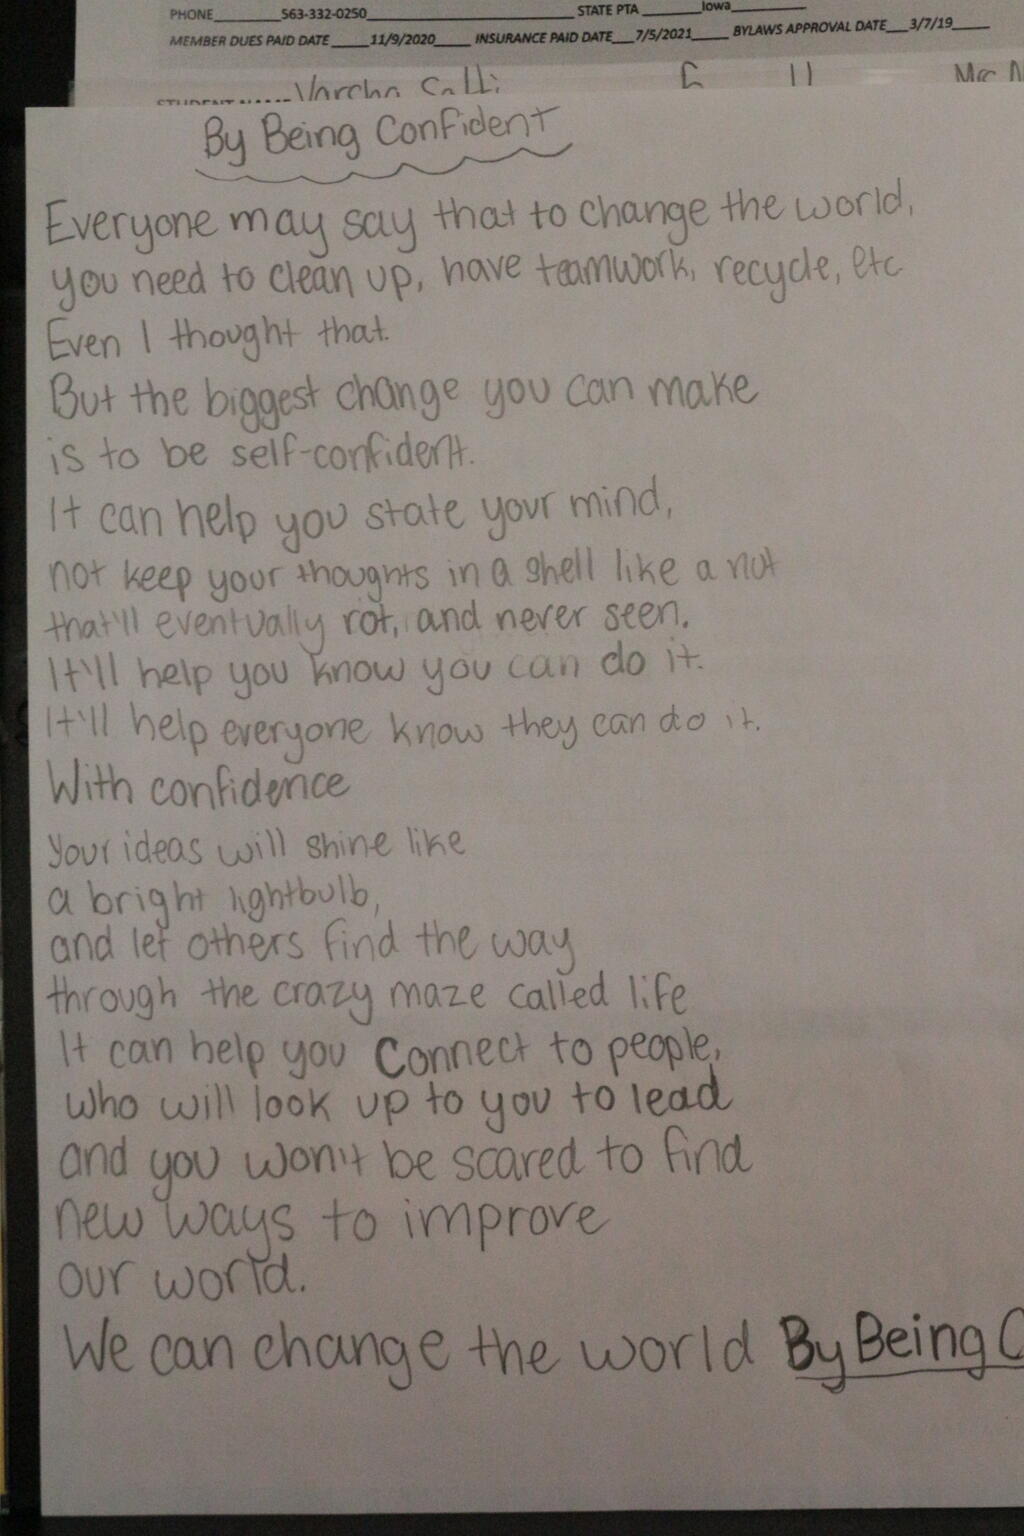 PHONE 563-332-0250 STATE PTA Iowa
MEMBER DUES PAID DATE 11/9/2020 INSURANCE PAID DATE 7/5/2021 BYLAWS APPROVAL DATE 3/7/19
STUDENT NAME
By Being Confident
Everyone may say that to change the world,
you need to clean up, have teamwork, recycle, etc
Even I thought that.
But the biggest change you can make
is to be self-confident.
It can help you state your mind,
not keep your thoughts in a shell like a nut
that'll eventually rot, and never seen.
It'll help you know you can do it.
It'll help everyone know they can do it.
With confidence
your ideas will shine like
a bright lightbulb,
and let others find the way
through the crazy maze called life
It can help you connect to people,
who will look up to you to lead
and you won't be scared to find
new ways to improve
our world.
We can change the world By Being C